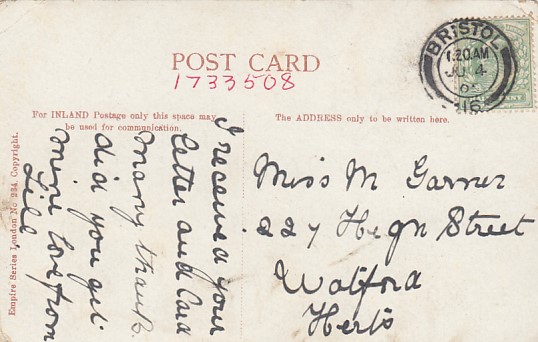 POST CARD
1733508
BRISTOL
1.20AM
JU 4
16
For INLAND Postage only this space may
be used for communication.
The ADDRESS only to be written here.
I received your
letter and Card
many thanks.
did you get
mine love from
Lill
Miss M Garner
227 High Street
Watford
Herts
Empire Series London No 234. Copyright.